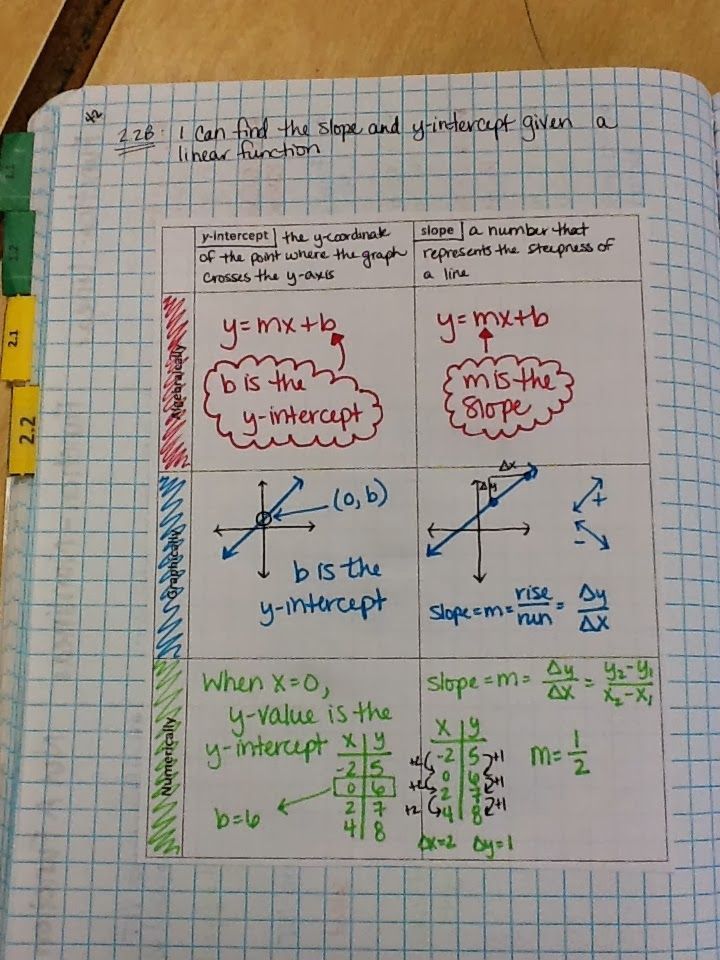 2.2B: I can find the slope and y-intercept given a
linear function
y-intercept the y-coordinate
of the point where the graph
crosses the y-axis
slope a number that
represents the steepness of
a line
2.1
2.2
Algebraically
y=mx+b
b is the
y-intercept
y=mx+b
m is the
slope
Graphically
(0,b)
b is the
y-intercept
Δx
Δy
+
-
slope=m= rise/run = Δy/Δx
Numerically
When x=0,
y-value is the
y-intercept
x y
-2 5
0 6
2 7
4 8
b=6
slope=m= Δy/Δx = y₂-y₁/x₂-x₁
x y
+2 -2 5 +1
+2 0 6 +1
+2 2 7 +1
4 8
Δx=2 Δy=1
m= 1/2